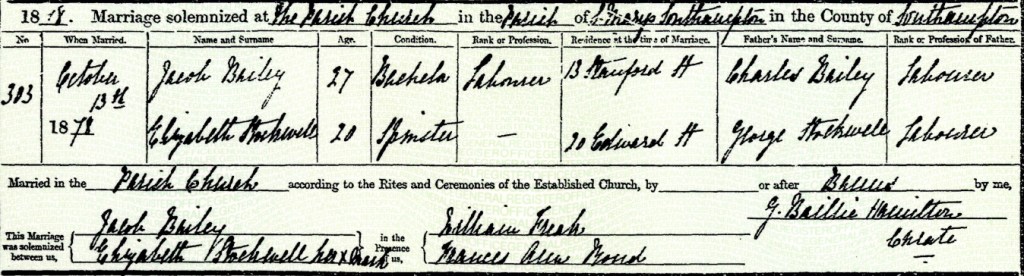 1878. Marriage solemnized at The Parish Church in the Parish of St Marys Southampton in the County of Southampton
No When Married. Name and Surname Age. Condition. Rank or Profession. Residence at the time of Marriage. Father's Name and Surname. Rank or Profession of Father.
303 October 13th 1878 Jacob Bailey 27 Bachelor Labourer 13 Stanford St Charles Bailey Labourer
Elizabeth Stockwell 20 Spinster — 20 Edward St George Stockwell Labourer
Married in the Parish Church according to the Rites and Ceremonies of the Established Church, by or after Banns by me,
G. Baillie Hamilton
Curate
This Marriage was solemnized between us,
Jacob Bailey
Elizabeth Stockwell her x mark
in the Presence of us,
William Freak
Frances Ann